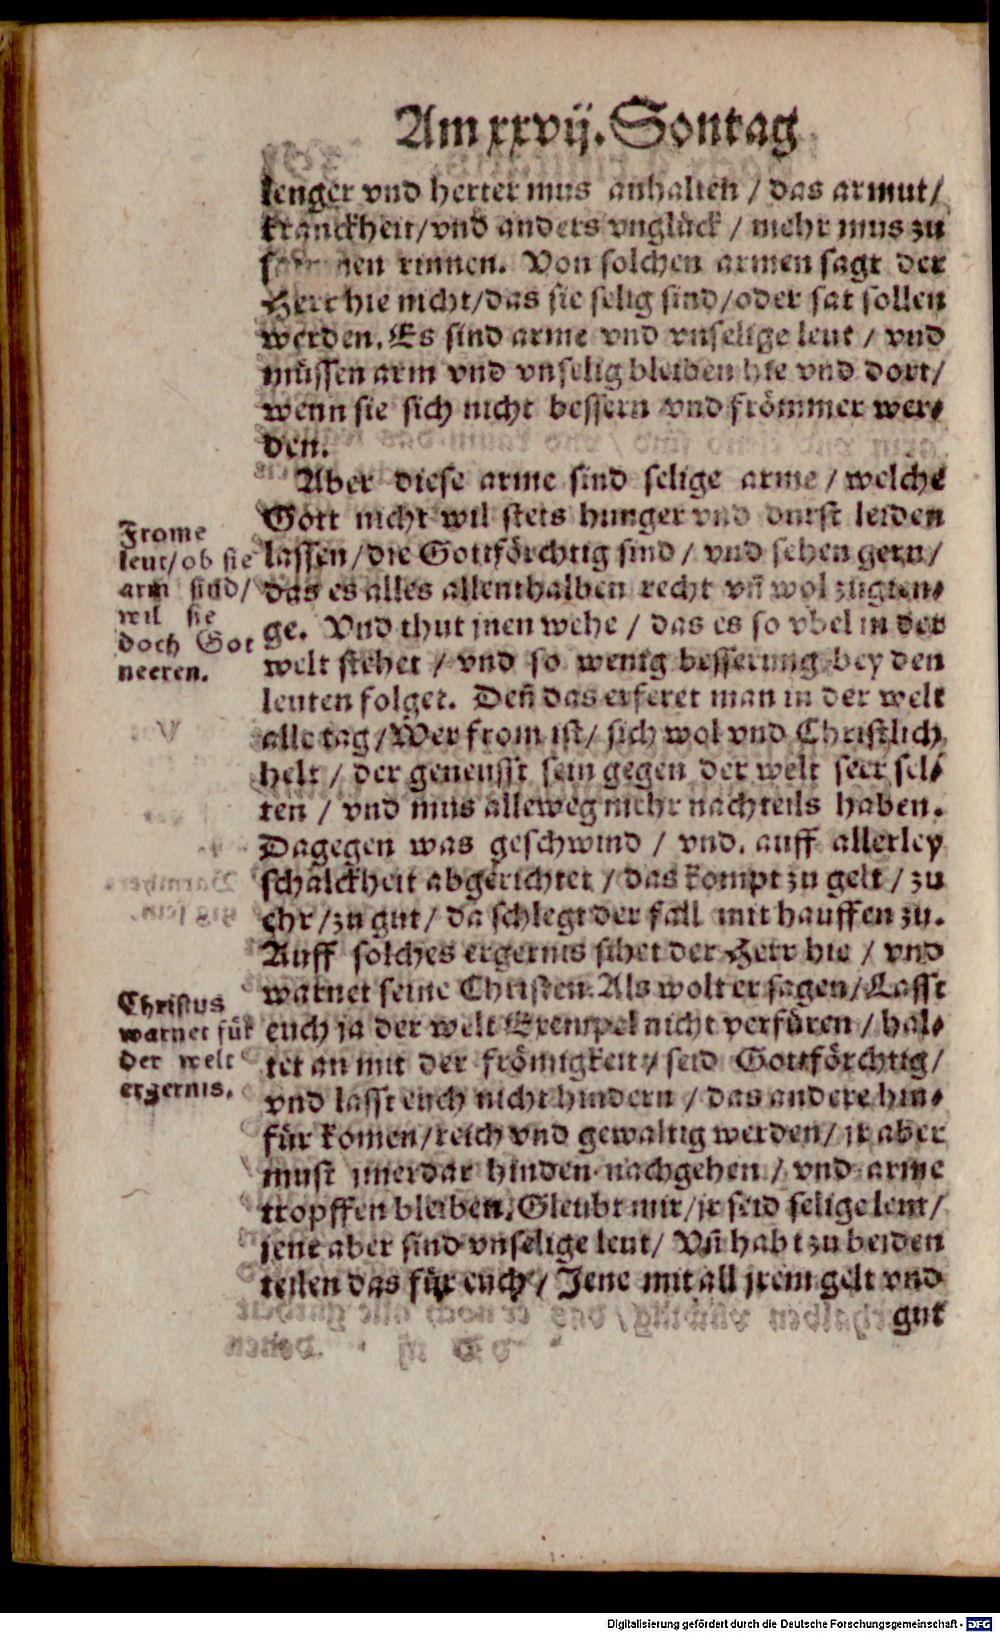 Am xxvij. Sontag
lenger vnd herter mus anhalten / das armut /
kranckheit / vnd anders vnglück / mehr mus zu
samen rinnen. Von solchen armen sagt der
Herr hie nicht / das sie selig sind / oder sat sollen
werden. Es sind arme vnd vnselige leut / vnd
müssen arm vnd vnselig bleiben hie vnd dort /
wenn sie sich nicht bessern vnd frömmer wer-
den.
Aber diese arme sind selige arme / welche
Gott nicht wil stets hunger vnd durst leiden
lassen / die Gottförchtig sind / vnd sehen gern /
das es alles allenthalben recht vñ wol zugien-
ge. Vnd thut jnen wehe / das es so vbel in der
welt stehet / vnd so wenig besserung bey den
leuten folget. Deñ das erferet man in der welt
alle tag / Wer from ist / sich wol vnd Christlich
helt / der geneusst sein gegen der welt seer sel-
ten / vnd mus alleweg mehr nachteils haben.
Dagegen was geschwind / vnd auff allerley
schalckheit abgerichtet / das kompt zu gelt / zu
ehr / zu gut / da schlegt der fall mit hauffen zu.
Auff solches ergernis sihet der Herr hie / vnd
warnet seine Christen. Als wolt er sagen / Lasst
euch ja der welt Exempel nicht verfüren / hal-
tet an mit der frömigkeit / seid Gottförchtig /
vnd lasst euch nicht hindern / das andere hin-
für komen / reich vnd gewaltig werden / jr aber
must jmerdar hinden nachgehen / vnd arme
tropffen bleiben. Gleubt mir / jr seid selige leut /
jene aber sind vnselige leut / Vñ habt zu beiden
teilen das für euch / Jene mit all jrem gelt vnd
gut
Frome
leut / ob sie
arm sind /
wil sie
doch Got
neeren.
Christus
warnet für
der welt
ergernis.
Digitalisierung gefördert durch die Deutsche Forschungsgemeinschaft - DFG